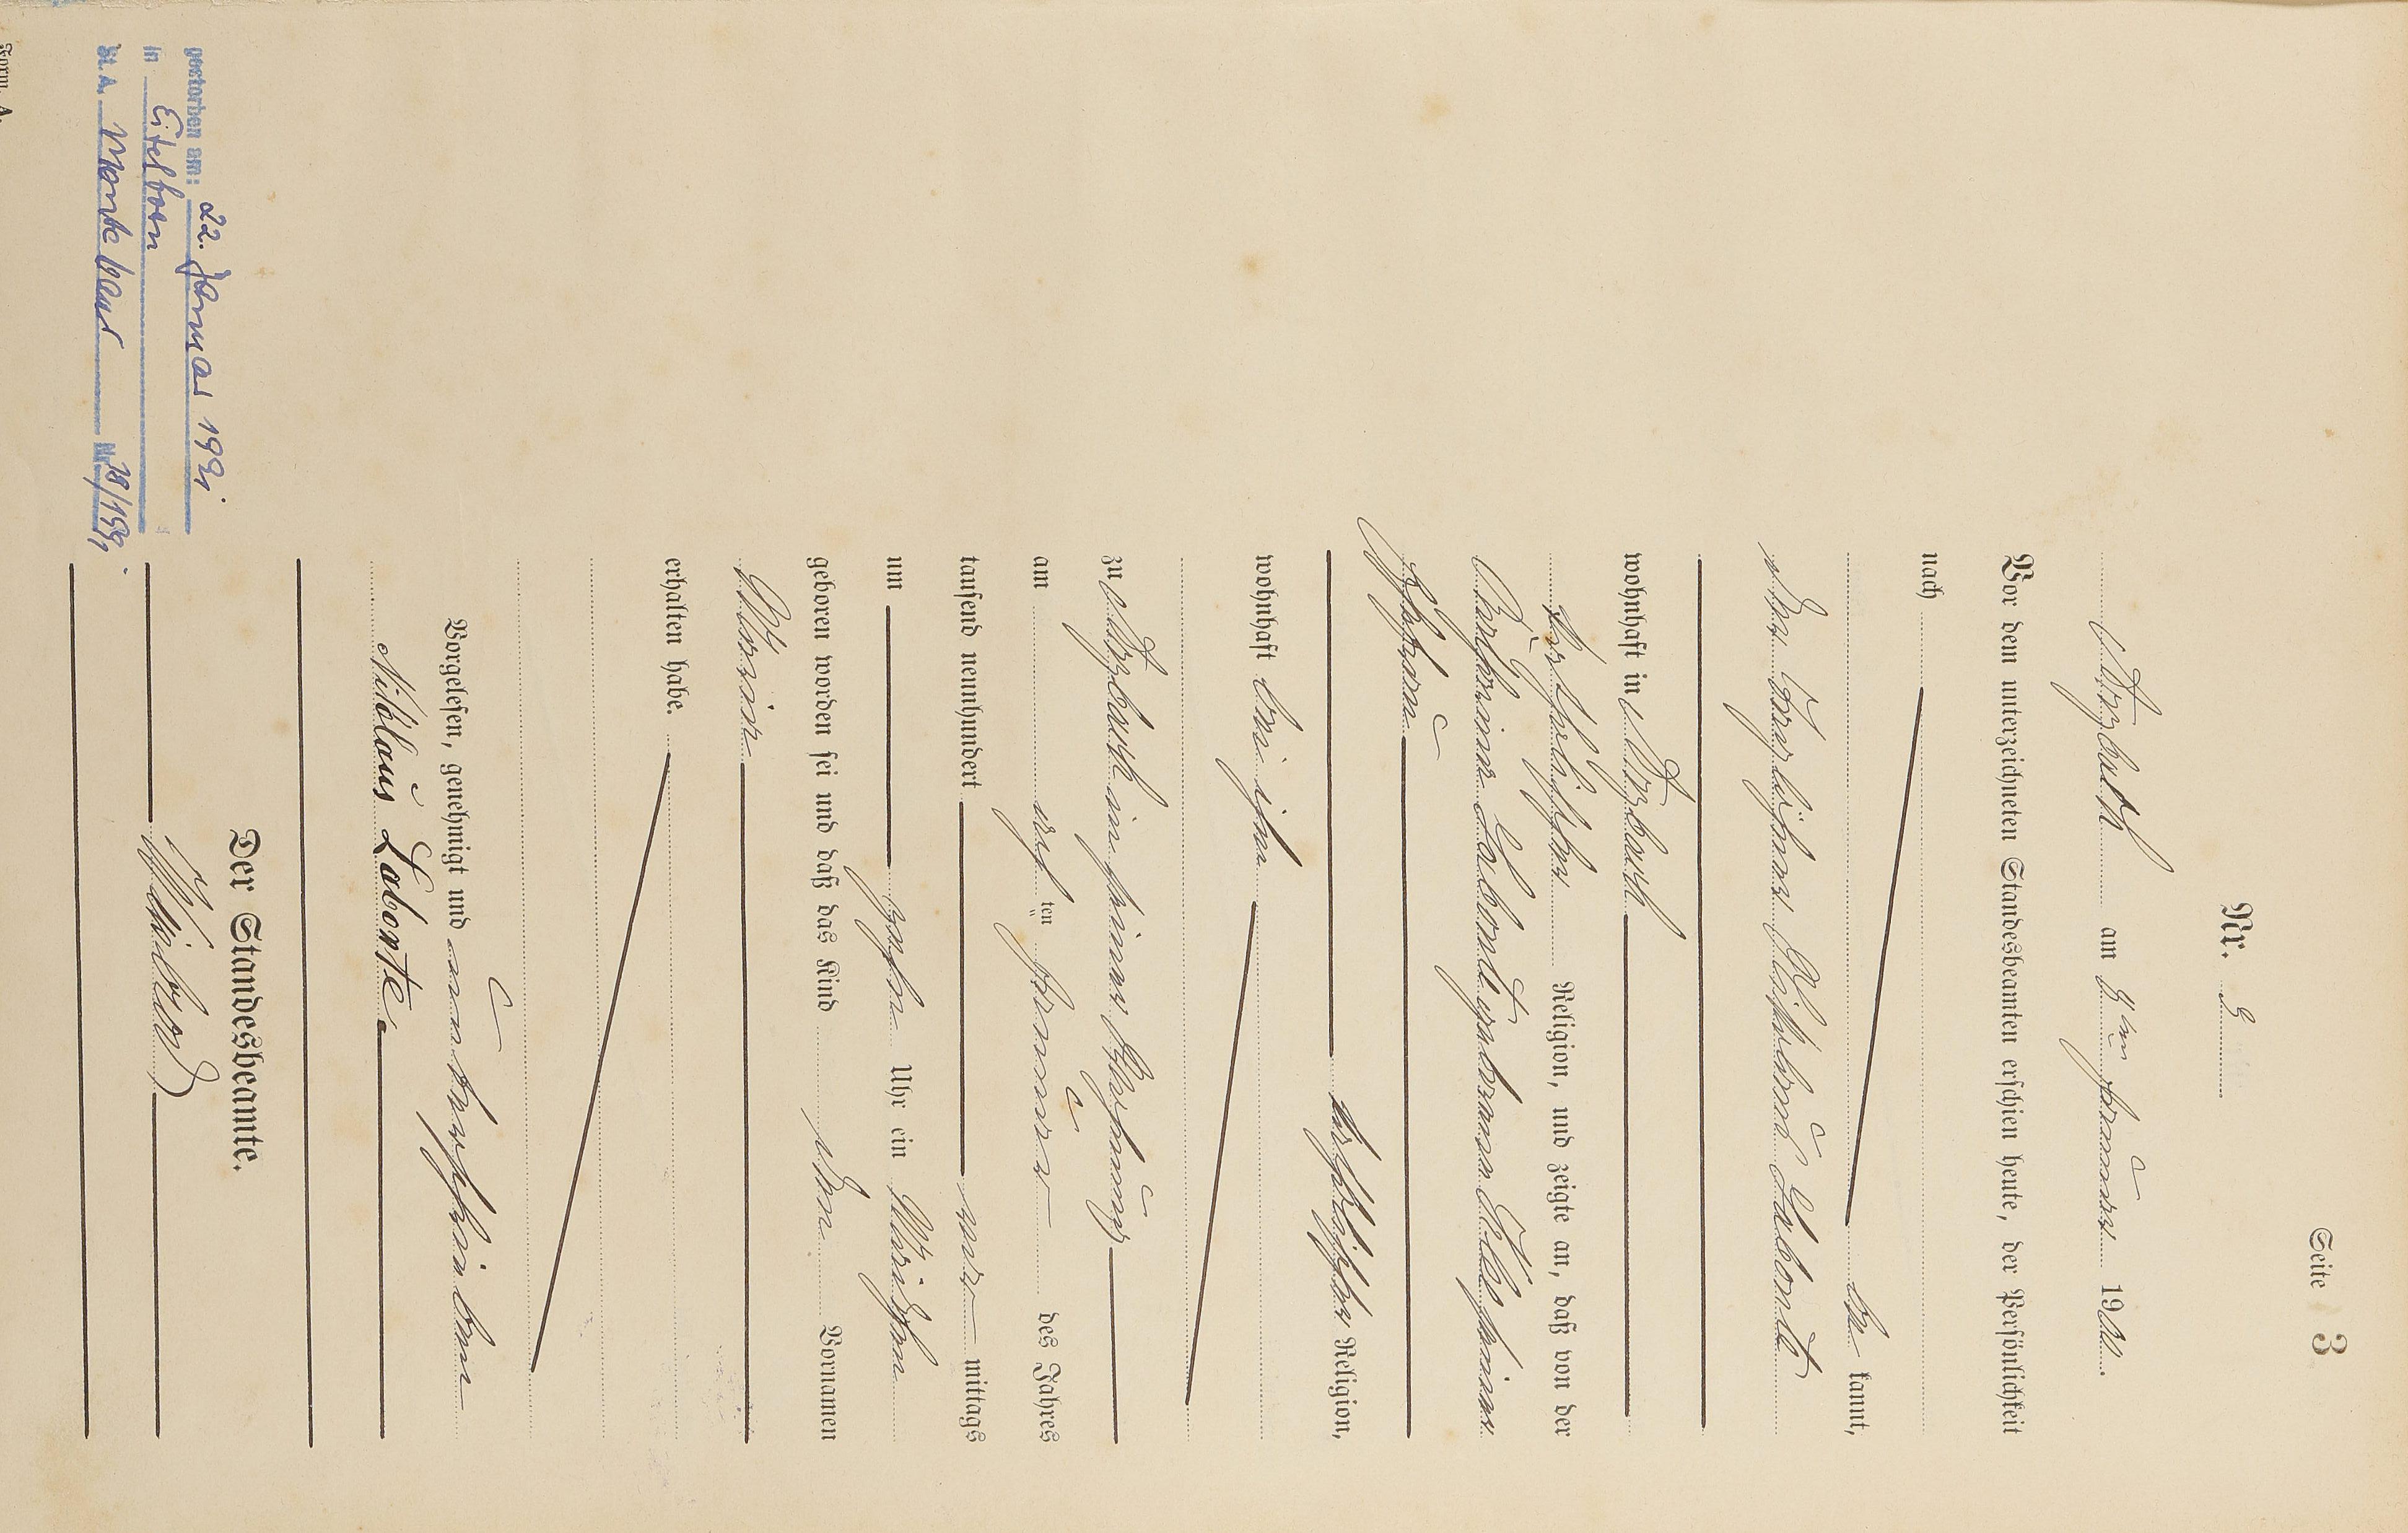 Seite 3
Nr. 3
Arzbach am 8ten Januar 1900.
Vor dem unterzeichneten Standesbeamten erschien heute, der Persönlichkeit
nach
be kannt,
der Tagelöhner Nikolaus Labonte
wohnhaft in Arzbach
katholischer Religion, und zeigte an, daß von der
Labonte geborenen seiner
Ehefrau
katholischer Religion,
wohnhaft bei ihm
zu Arzbach in seiner Behausung
am ten Januar des Jahres
tausend neunhundert vor mittags
um zehn Uhr ein Mädchen
geboren worden sei und daß das Kind den Vornamen
Maria
erhalten habe.
Vorgelesen, genehmigt und unterschrieben
Nikolaus Labonte
Der Standesbeamte.
gestorben am: 22. Januar 1991
in Eitelborn
St. A. Montabaur Nr. 18/1991
Form. A.